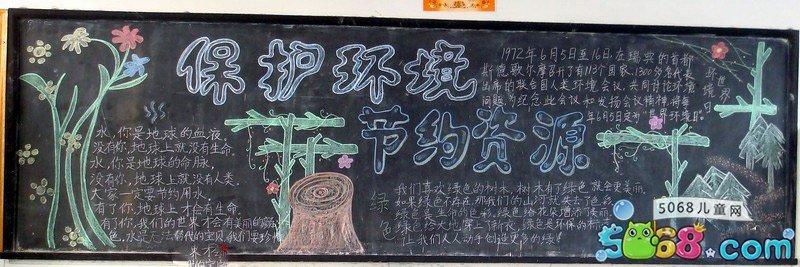 保护环境
节约资源
1972年6月5日至16日,在瑞典的首都
斯德歌尔摩召开了有113个国家、1300多名代表
出席的联合国人类环境会议,共同讨论环境
问题,为纪念此会议和发扬会议精神,将每
年6月5日定为"世界环境日"。
世界
环境日
水,你是地球的血液
没有你,地球上就没有生命。
水,你是地球的命脉,
没有你,地球上就没有人类。
大家一定要节约用水,
有了你,地球上才会有生命。
有了你,我们的世界才会有美丽的
色,水是万物替代的宝贝,我们要珍惜
绿
色
我们喜欢绿色的树木,树木有了绿色,就会更美丽。
如果绿色不存在,那我们的山河就失去了色彩,
绿色是生命的色彩,绿色给花朵增添了美丽
绿色给大地穿上了新衣,绿色是环保的标
让我们人人动手创造更多的绿!
5068儿童网
5068.com